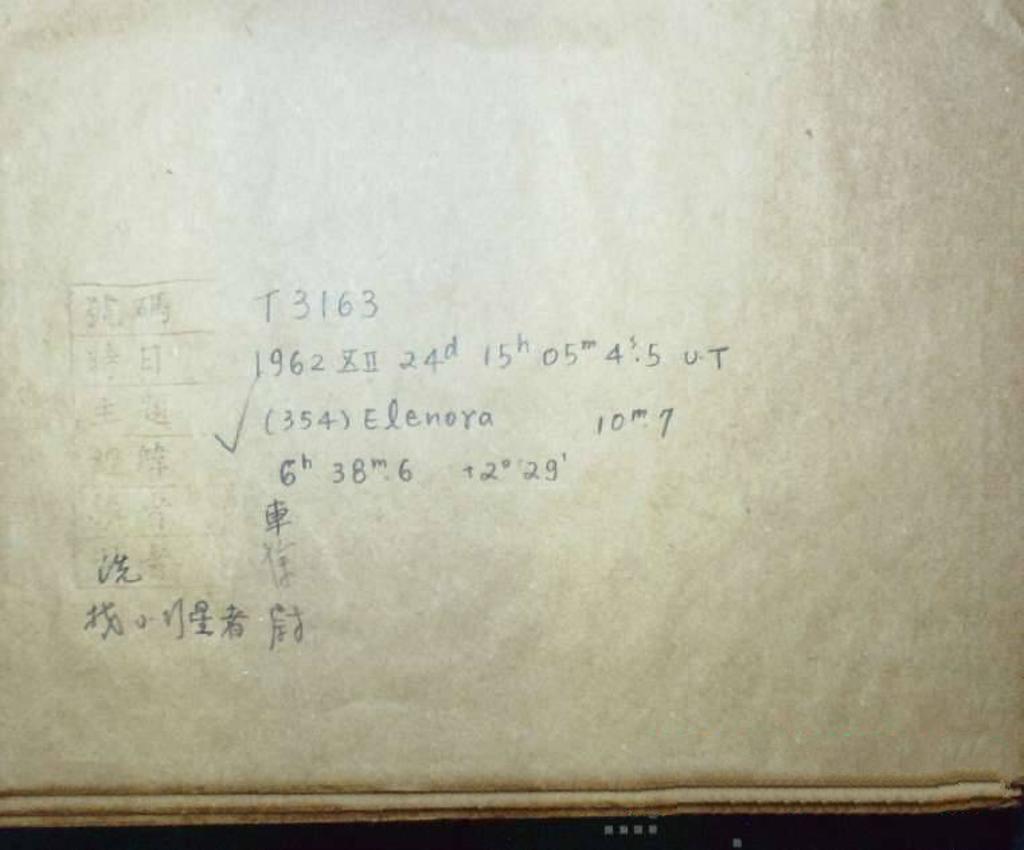 號碼 T 3163
時日 1962 XII 24d 15h 05m 4s.5 U.T
(354) Elenora 10m.7
6h 38m.6 +2° 29'
車
洗 徐
找小行星者 尉